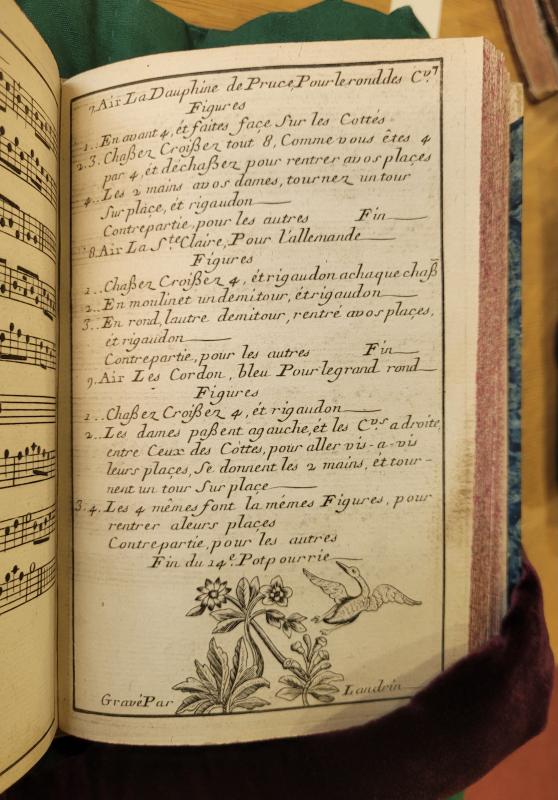 7. Air La Dauphine de Pruce, Pour le rond des C.vs
Figures
1.. En avant 4, ét faites façe Sur les Cottés
2.3. Chaßez Croißez tout 8, Comme vous êtes 4
par 4, ét déchaßez pour rentrer avos plaçes
4.. Les 2 mains avos dames, tournez un tour
Sur plaçe, ét rigaudon
Contrepartie, pour les autres Fin
8. Air La S.te Claire, Pour l'allemande
Figures
1.. Chaßez Croißez 4, ét rigaudon achaque chaß
2.. En moulinet un demi tour, ét rigaudon
3.. En rond, lautre demi tour, rentré avos plaçes,
ét rigaudon
Contrepartie, pour les autres Fin
9. Air Les Cordon, bleu Pour le grand rond
Figures
1.. Chaßez Croißez 4, ét rigaudon
2.. Les dames paßent agauche, ét les C.vs adroite,
entre Ceux des Côttes, pour aller vis-a-vis
leurs plaçes, Se donnent les 2 mains, ét tour-
nent un tour Sur plaçe
3.4. Les 4 mêmes font la mêmes Figures, pour
rentrer aleurs plaçes
Contrepartie, pour les autres
Fin du 14.e Potpourrie
Gravé Par Landrin